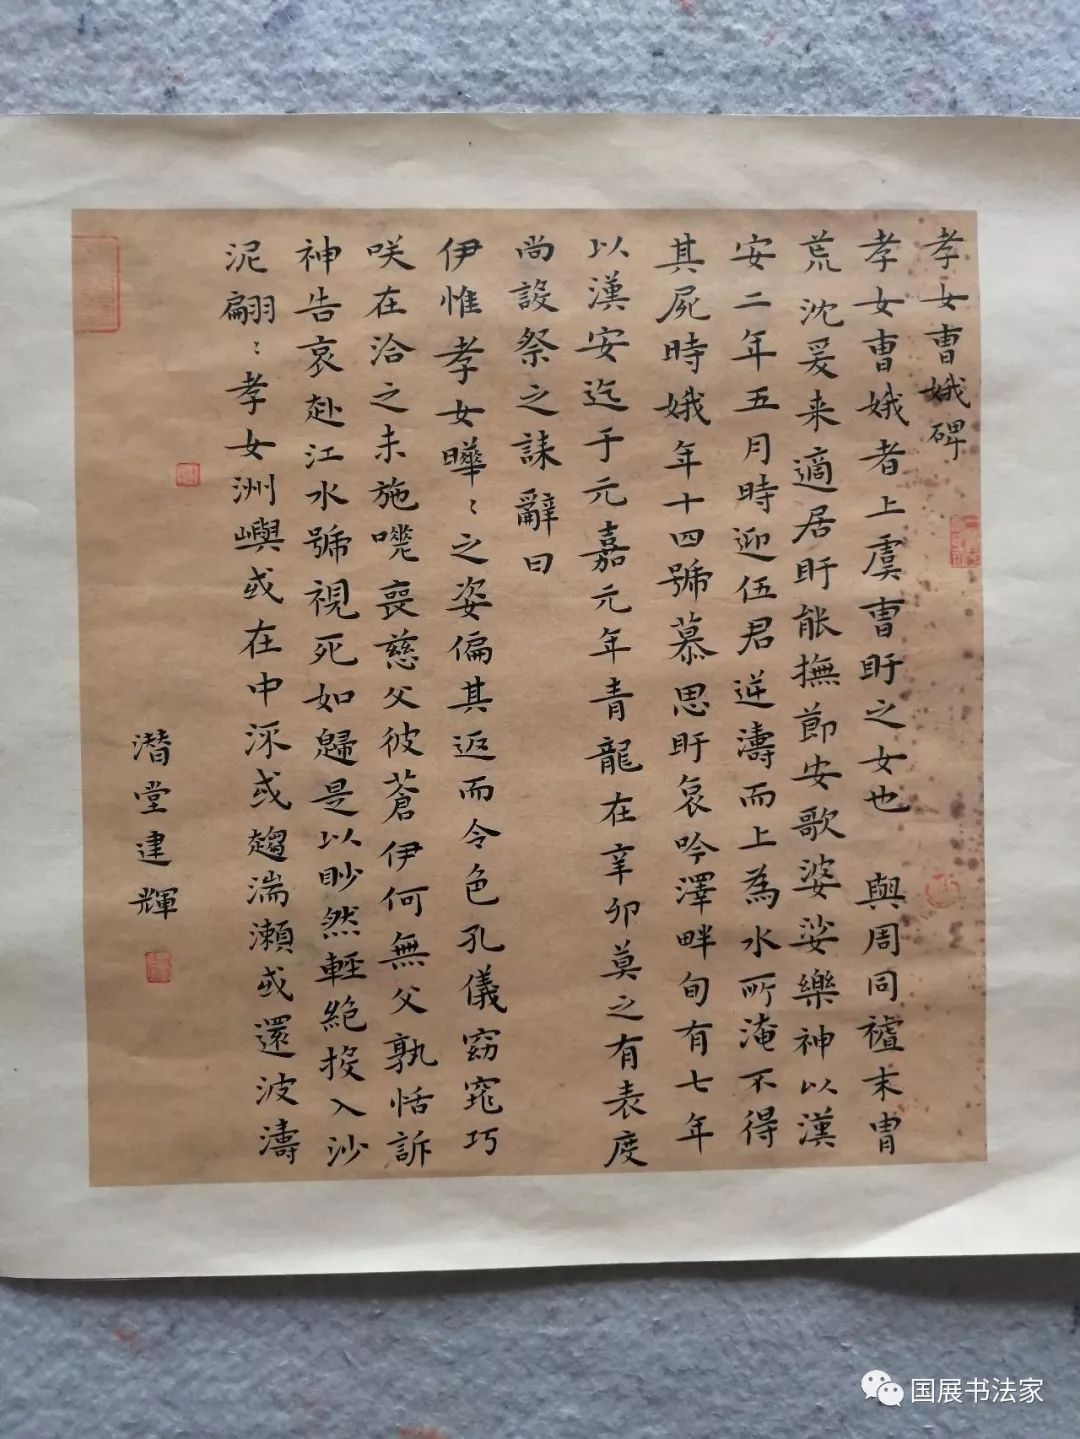 孝女曹娥碑
孝女曹娥者上虞曹盱之女也 與周同禠末胄
荒沈爰来適居盱能撫節安歌婆娑樂神以漢
安二年五月時迎伍君逆濤而上為水所淹不得
其屍時娥年十四號慕思盱哀吟澤畔旬有七年
以漢安迄于元嘉元年青龍在辛卯莫之有表度
尚設祭之誄辭曰
伊惟孝女曄〻之姿偏其返而令色孔儀窈窕巧
咲在洽之未施嘅喪慈父彼蒼伊何無父孰恬訴
神告哀赴江水號視死如歸是以眇然輕絶投入沙
泥翩〻孝女洲嶼或在中流或趨湍瀨或還波濤
潛堂建輝
国展书法家